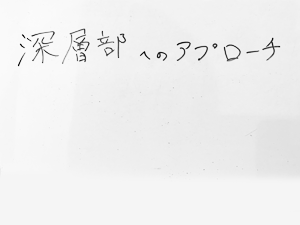 深層部へのアプローチ